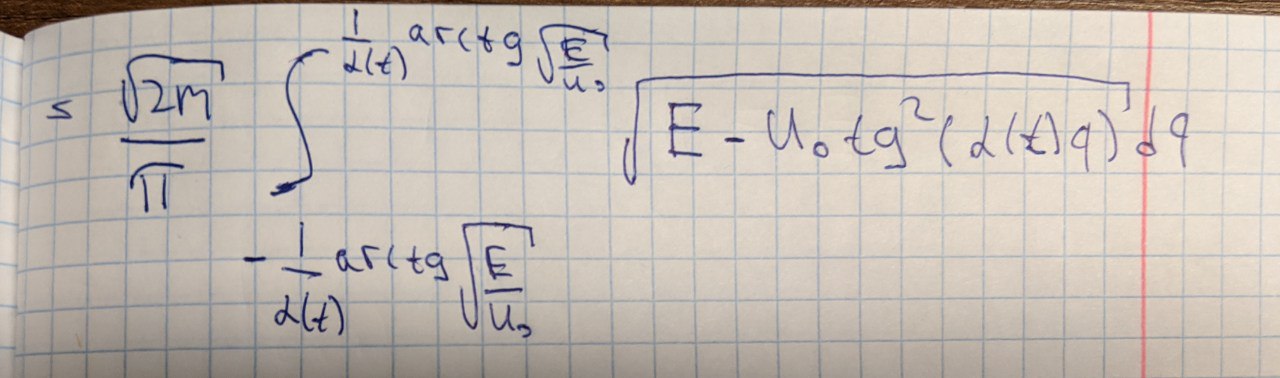 = \frac{\sqrt{2m}}{\pi} \int_{-\frac{1}{\alpha(t)} arctg \sqrt{\frac{E}{U_0}}}^{\frac{1}{\alpha(t)} arctg \sqrt{\frac{E}{U_0}}} \sqrt{E - U_0 tg^2(\alpha(t)q)} dq